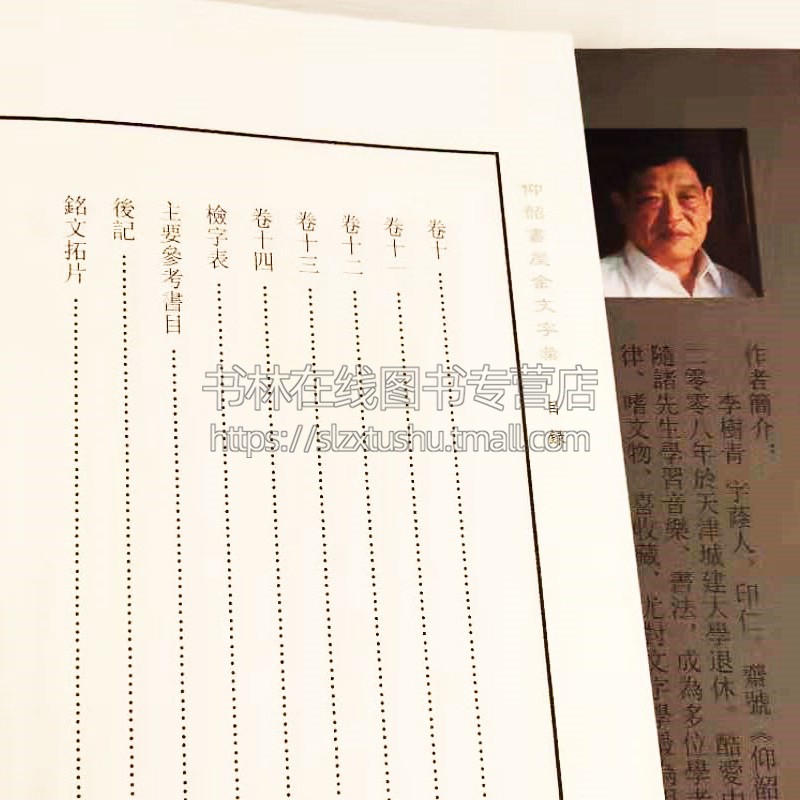 作者簡介：
李樹青 字蔭人，印仁。齋號《仰韶
二零零八年於天津城建大學退休。酷愛
隨諸先生學習音樂、書法，成為多位學者
律、嗜文物、喜收藏、尤對文字學
仰韶書屋金文字彙 目錄
卷十
卷十一
卷十二
卷十三
卷十四
檢字表
主要參考書目
後記
銘文拓片
书林在线图书专营店
https://slzxtushu.tmall.com